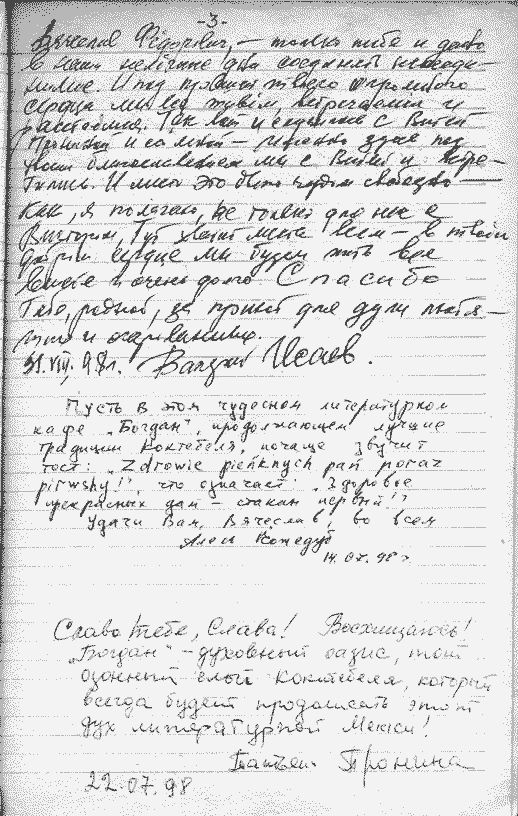 -3-
Вячеслав Фёдорович, — только тебе и дано
в наши нелёгкие дни соединять несоеди-
нимое. И под крышей твоего огромного
сердца мы все живём, встречаемся и
расстаёмся. Так вот и с
и со мной — именно здесь под
твоим благословением мы с и встре-
тились. И место это быть чудом свободно —
как, я полагаю, не только для нас с
Виктором, тут хватит места всем — в твоём
добром сердце мы будем жить все
вместе и очень долго Спасибо
Тебе, родной, за приют для души мятя-
и очарование.
31.VIII.98г. Исаев.
Пусть в этом чудесном литературном
кафе „Богдан", продолжающем лучшие
традиции Коктебеля, почаще звучит
тост: „Zdrowie pieńknych pań poraz
pirwshy!", что означает: „Здоровье
прекрасных дам — стакан первый!"
Удачи Вам, Вячеслав, во всем
Алесь Кожедуб
14.07.98г
Слава тебе, Слава! Восхищаюсь!
„Богдан" — духовный оазис, тот
озонный слой Коктебеля, который
всегда будет продолжать этот
дух литературной Мекки!
Пронина
22.07.98